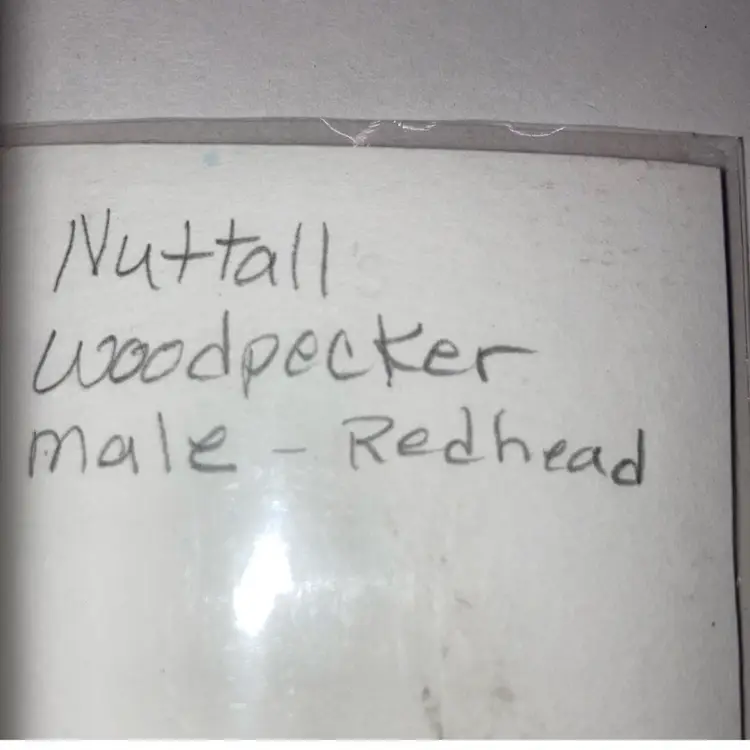 Nuttall
woodpecker
male - Redhead